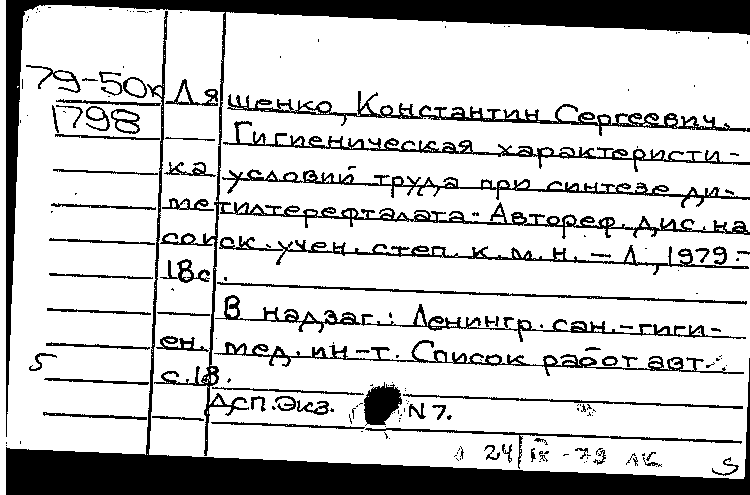 79-50к Ляшенко, Константин Сергеевич.
1798 Гигиеническая характеристи-
ка условий труда при синтезе ди-
метилтерефталата. - Автореф. дис. на
соиск. учен. степ. к.м.н. – Л., 1979. -
18с.
В надзаг.: Ленингр. сан.-гиги-
ен. мед. ин-т. Список работ авт.
5 с.18.
Дсп. Экз. N 7.
24 IX - 79 ЛК S